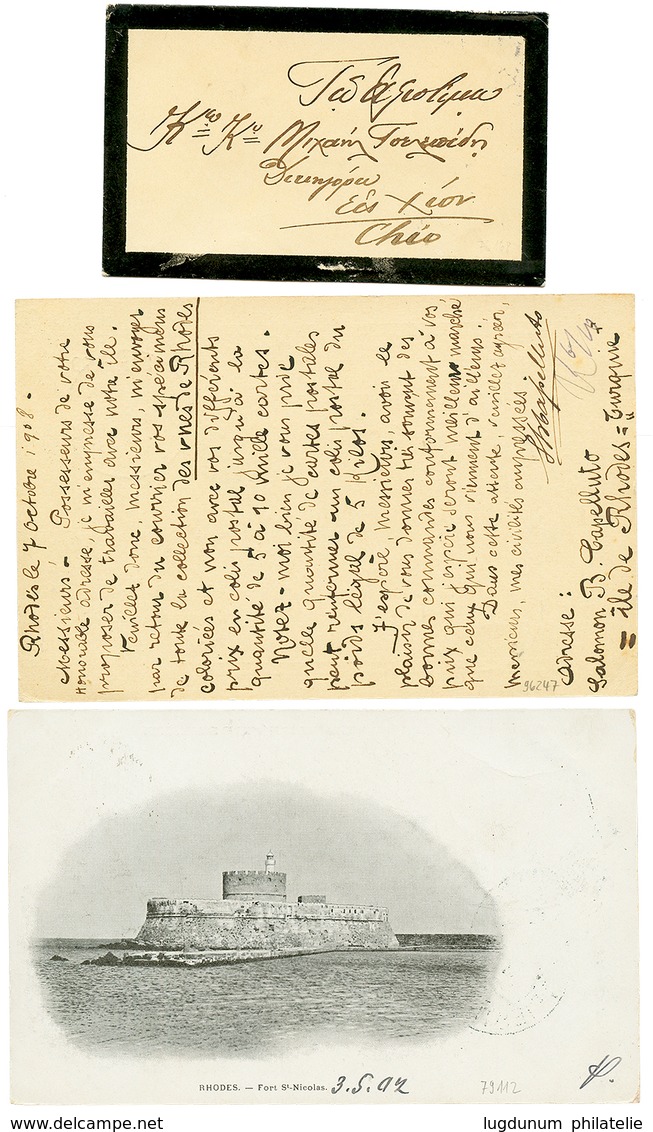 Κῳ Κῳ Μιχαὴλ
Εἰς Χίον
Chio
Rhodes le 7 octobre 1908.
Messieurs - Possesseurs de votre
honorable adresse, je m'empresse de vous
proposer de travailler avec notre île.
Veuillez donc, messieurs, m'envoyer
par retour du courrier vos spécimens
de toute la collection des vues de Rhodes
coloriées et non avec vos différents
prix en colis postal jusqu'à la
quantité de 5 à 10 mille cartes.
Notez-moi bien je vous prie
quelle quantité de cartes postales
peut renfermer un colis postal du
poids légal de 5 kilos.
J'espère messieurs avoir le
plaisir de vous donner très souvent des
bonnes commandes conformément à vos
prix qui j'espère seront meilleur marché
que ceux qui nous viennent d'ailleurs.
Dans cette attente, veuillez agréer,
messieurs, mes civilités empressées
SBCapelluto
96247
Adresse :
Salomon B. Capelluto
= île de Rhodes = Turquie
RHODES. — Fort St-Nicolas. 3.5.02
79112
lugdunum philatelie